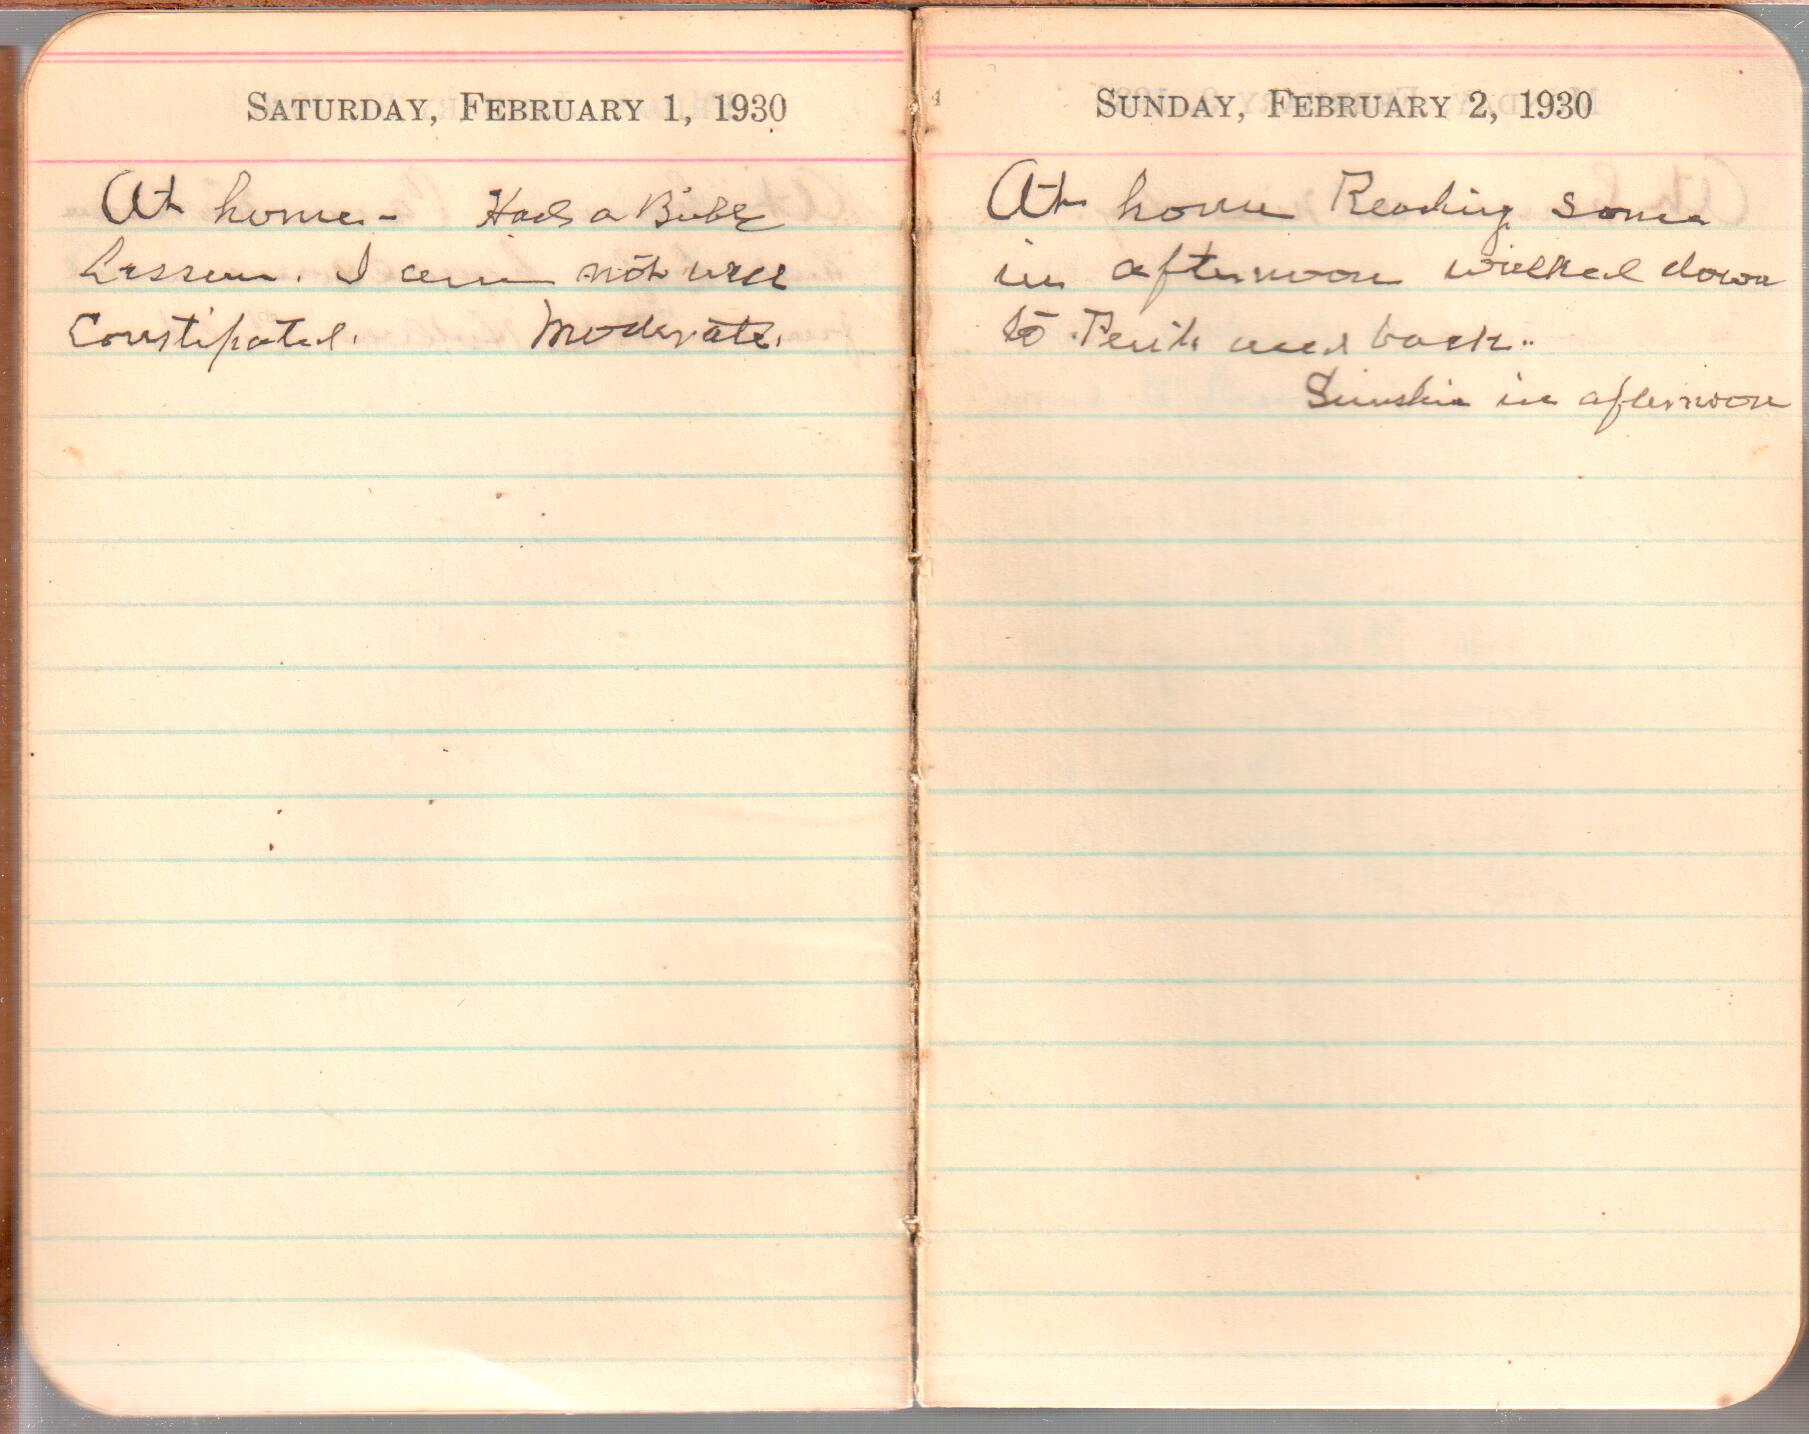 SATURDAY, FEBRUARY 1, 1930
At home - Had a Bible
Lesson. I am not well
Constipated. Moderate.
SUNDAY, FEBRUARY 2, 1930
At home Reading some
in afternoon walked down
to and back..
Sunshin in afternoon